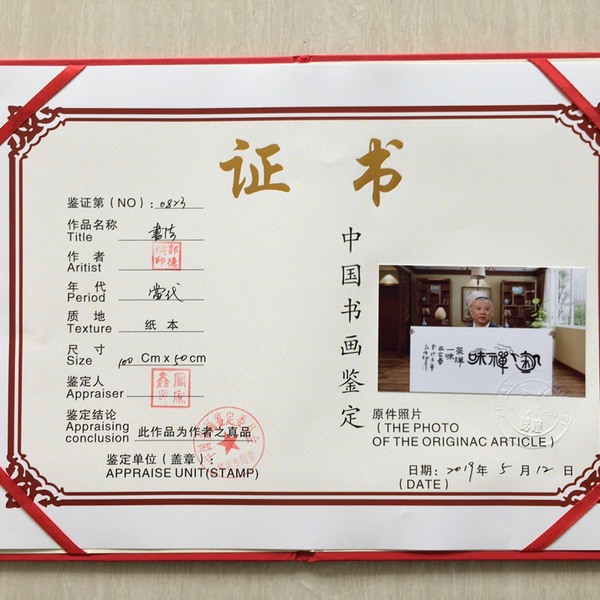 证 书
鉴证第(NO):0823
作品名称
Title 書法
作 者
Aritist 郭德纲印
年 代
Period 當代
质 地
Texture 纸 本
尺 寸
Size 100 Cm x 50 cm
鉴定人
Appraiser
鉴定结论
Appraising
conclusion 此作品为作者之真品
鉴定单位(盖章):
APPRAISE UNIT(STAMP)
中国书画鉴定
原件照片
(THE PHOTO
OF THE ORIGINAC ARTICLE)
日期:2019年 5 月 12 日
(DATE)
禅味
茶禅
一味